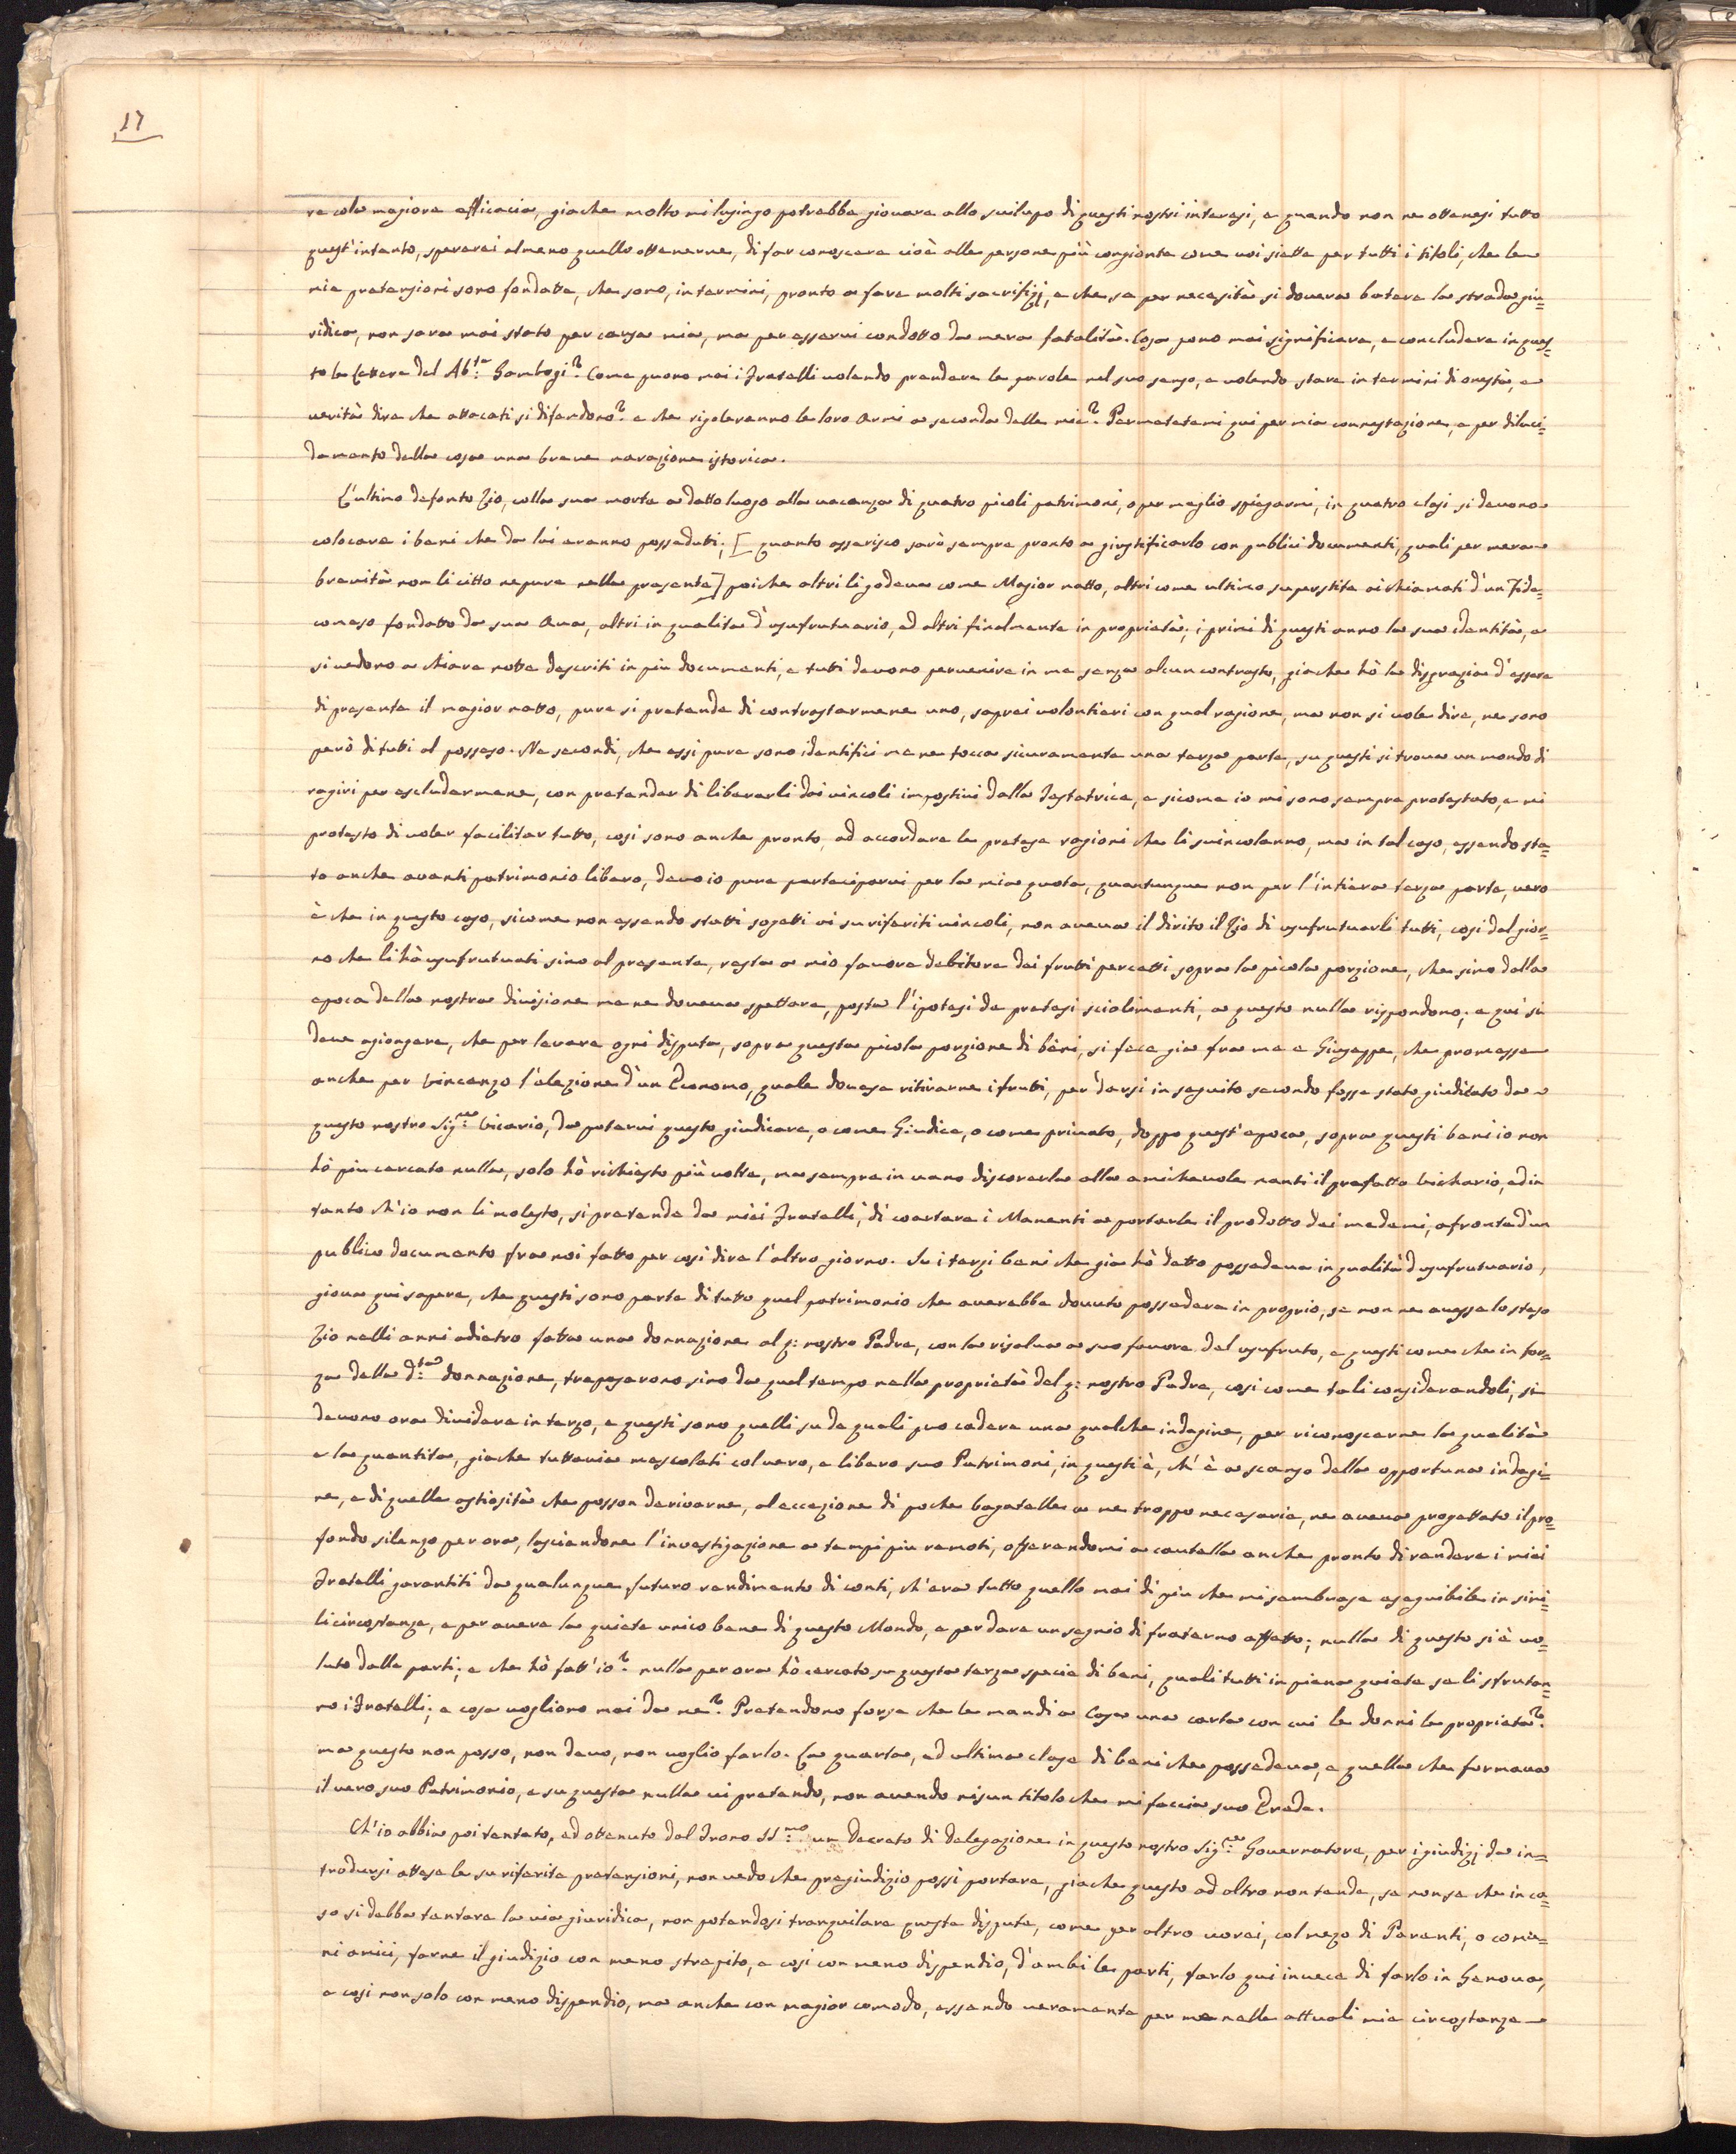 17
re colo magiore efficacia, gia che molto mi lusingo potrebbe giovare allo svilupo di questi nostri interesi, e quando non ne ottenesi tutto
quest'intento, sperarei almeno quello ottenerne, di far conoscere cioè alle persone più congionte come voi siette per tutti i titoli, che le
mie pretensioni sono fondatte, che sono, in termini, pronto a fare molti sacrifizj, e che se per necesità si dovera batere la strada giu=
ridica, non sara mai stato per causa mia, ma per esservi condotto da mera fatalità. Cosa pono mai significare, e concludere in ques=
to le Lettere del Ab:te Gambogi? Come puono mai i Fratelli volendo prendere le parole nel suo senso, e volendo stare in termini di onestà, e
verità dire che attacati si difendono? e che rigoleranno le loro Armi a seconda delle mie? Permetetemi qui per mia connestazione, e per diluci=
damento della cosa una breve narazione istorica.
L'ultimo defonto Zio, colla sua morte a datto luogo alla vacanza di quatro picoli patrimoni, o per meglio spiegarmi, in quatro clasi si devono
colocare i beni che da lui eranno posseduti; [ quanto asserisco sarò sempre pronto a giustificarlo con publici documenti, quali per mera
brevità non li citto nepure nella presente ] poiche altri li godeva come Magior natto, altri come ultimo superstite ai chiamati d'un Fide=
comeso fondatto da sua Ava, altri in qualita d'usufrutuario, ed altri finalmente in proprietà; i primi di questi anno la sua identità, e
si vedono a chiare notte descriti in più documenti, e tutti devono pervenire in me senza alcun contrasto, gia che hò la disgrazia d'essere
di presente il magior natto, pure si pretende di contrastarmene uno, saprei volontieri con qual ragione, ma non si vole dire, ne sono
però di tutti al possesso. Ne secondi, che essi pure sono identifici me ne tocca sicuramente una terza parte, su questi si trova un mondo di
ragiri per escludermene, con pretender di liberarli dai vincoli impostivi dalla Testatrice, e sicome io mi sono sempre protestato, e mi
protesto di voler facilitar tutto, cosi sono anche pronto, ad accordare le pretese ragioni che li svincolanno, ma in tal caso, essendo sta=
to anche avanti patrimonio libero, devo io pure parteciparvi per la mia quota, quantunque non per l'intiera terza parte, vero
è che in questo caso, sicome non essendo statti sogetti ai su riferiti vincoli, non aveva il dirito il Zio di usufrutuarli tutti, cosi dal gior=
no che li hà usufrutuati sino al presente, resta a mio favore debitore dei frutti percetti sopra la picola porzione, che sino dalla
epoca della nostra divisione me ne doveva spettare, posta l'ipotesi de pretesi sciolimenti, a questo nulla rispondono; e qui si
deve agiongere, che per levare ogni disputa, sopra questa picola porzione di beni, si fece gia fra me e Giuseppe, che promesse
anche per Vincenzo l'elezione d'un Economo, quale dovese ritirarne i frutti, per darsi in seguito secondo fosse stato giudicato da
questo nostro Sig:re Vicario, da potervi questo giudicare, o come Giudice, o come privato, doppo quest'epoca, sopra questi beni io non
hò piu cercato nulla, solo hò richiesto più volte, ma sempre in vano discorerla alla amichevole nanti il prefatto Vichario, ed in
tanto ch'io non li molesto, si pretende da miei Fratelli, di coartare i Manenti a portarle il prodotto dei medemi, afronte d'un
publico documento fra noi fatto per cosi dire l'altro giorno. Su i terzi beni che gia hò detto possedeva in qualità d'usufrutuario,
giova qui sapere, che questi sono parte di tutto quel patrimonio che averebbe dovuto possedere in proprio, se non ne avesse lo steso
Zio nelli anni adietro fatta una donnazione al q: nostro Padre, con la riselva a suo favore del usufruto, e questi come che in for=
za della d:ta donnazione, trapasarono sino da quel tempo nella proprietà del q: nostro Padre, cosi come tali considerandoli, si
devono ora dividere in terzo, e questi sono quelli su de quali puo cadere una qualche indagine, per riconoscerne la qualità
e la quantita, gia che tuttavia mescolati col vero, e libero suo Patrimoni, in questi è, ch'è a scanso della opportuna indagi=
ne, e di quelle ostiosità che posson derivarne, al eccezione di poche bagatelle a me troppo necesarie, ne aveva progettato il pro=
fondo silenzo per ora, lasciandone l'investigazione a tempi piu remoti, offerandomi a cautella anche pronto di rendere i miei
Fratelli garantiti da qualunque futuro rendimento di conti, ch'era tutto quello mai di piu che mi sembrase eseguibile in simi=
li circostanze, e per avere la quiete unico bene di questo Mondo, e per dare un segnio di fraterno affetto; nulla di questo si è vo=
luto dalle parti; e che hò fatt'io? nulla per ora hò cercato su questa terza specie di beni, quali tutti in piena quiete se li sfrutan=
no i Fratelli; e cosa vogliono mai da me? Pretendono forse che le mandi a Casa una carta con cui le donni le proprietà?
ma questo non posso, non devo, non voglio farlo. La quarta, ed ultima clase di beni che possedeva, e quella che formava
il vero suo Patrimonio, e su questa nulla vi pretendo, non avendo nisun titolo che mi faccia suo Erede.
Ch'io abbia poi tentato, ed ottenuto dal Trono SS:mo un Decreto di delegazione in questo nostro Sig:re Governatore, per i giudizj da in=
trodursi attese le su riferite pretensioni, non vedo che pregiudizio possi portare, gia che questo ad altro non tende, se non se che in ca=
so si debba tentare la via giuridica, non potendosi tranquilare queste dispute, come per altro vorei, col mezo di Parenti, o comu=
ni amici, farne il giudizio con meno strepito, e cosi con meno dispendio, d'ambi le parti, farlo qui invece di farlo in Genova,
e cosi non solo con meno dispendio, ma anche con magior comodo, essendo veramente per me nelle attuali mie circostanze